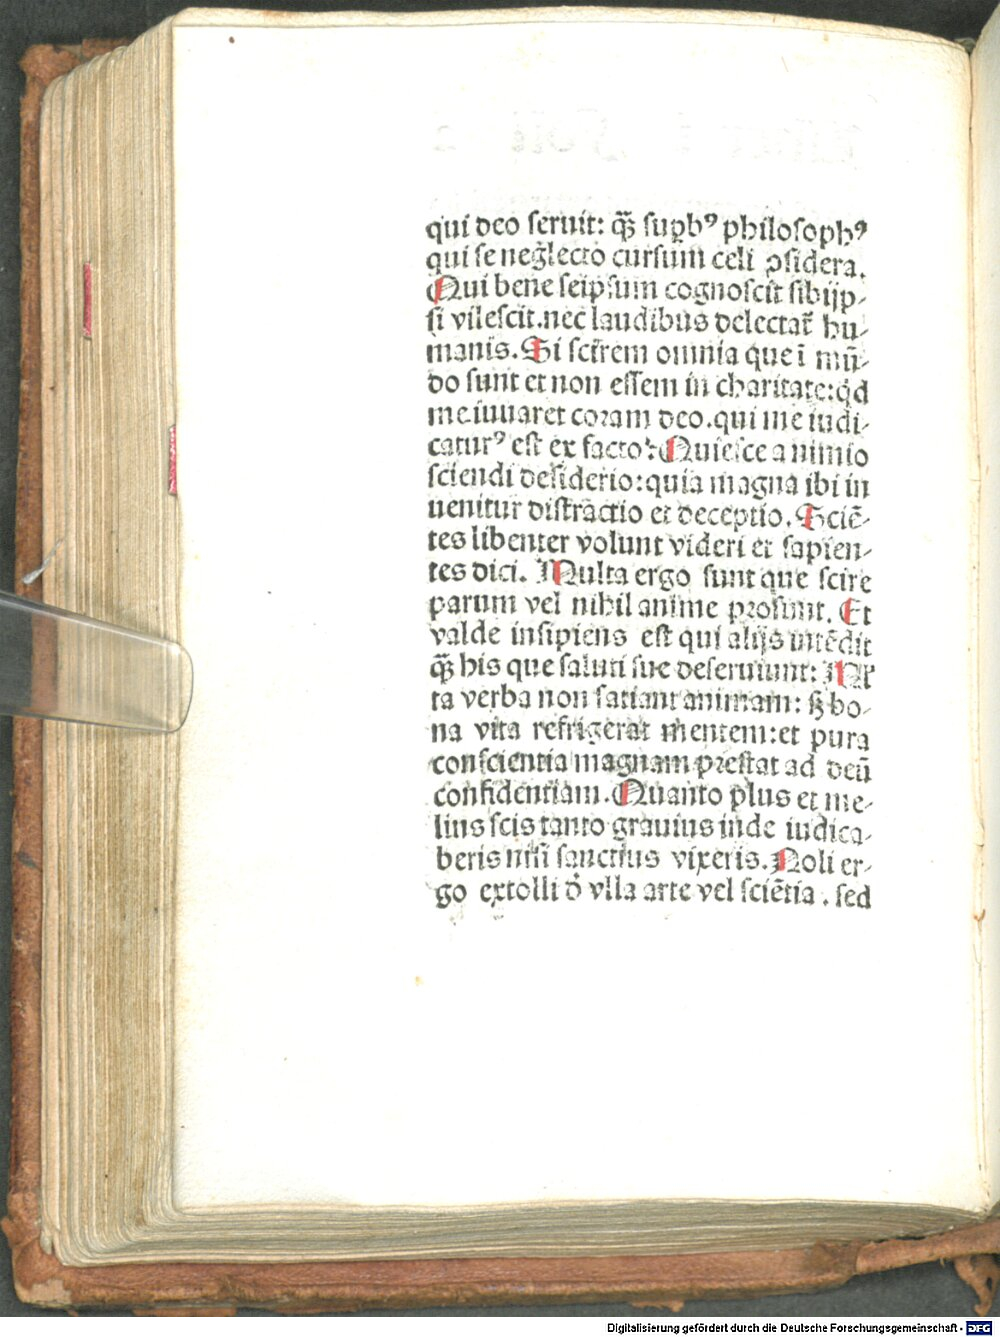 qui deo seruit: q̄ꝫ suꝑbꝰ philosophꝰ
qui se neglecto cursum celi ꝯsidera.
Qui bene seipsum cognoscit sibiip-
si vilescit.nec laudibus delectat̄ hu-
manis.Si scirem omnia que ī mū-
do sunt et non essem in charitate:qd
me iuuaret coram deo.qui me iudi-
caturꝰ est ex facto: Quiesce a nimio
sciendi desiderio:quia magna ibi in
uenitur distractio et deceptio.Sciē-
tes libenter volunt videri et sapien-
tes dici. Multa ergo sunt que scire
parum vel nihil anime prosunt. Et
valde insipiens est qui alijs intēdit
q̄ꝫ his que saluti sue deseruiunt:
ta verba non satiant animam: sꝫ bo-
na vita refrigerat mentem:et pura
conscientia magnam prestat ad deū
confidentiam.Quanto plus et me-
lius scis tanto grauius inde iudica-
beris nisi sanctius vixeris.Noli er-
go extolli ď vlla arte vel sciētia . sed
Digitalisierung gefördert durch die Deutsche Forschungsgemeinschaft - DFG